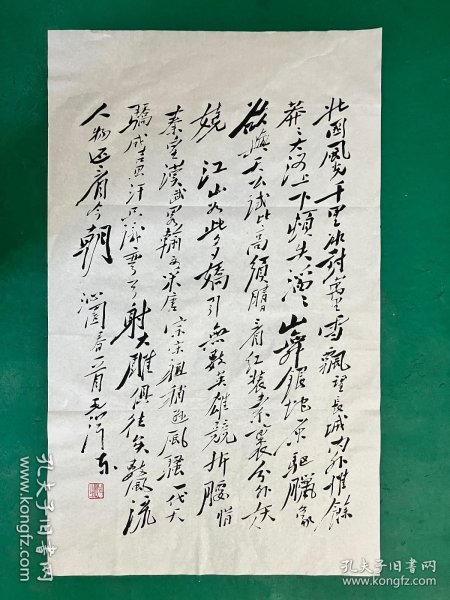 北国风光千里冰封万里雪飘望长城内外惟余
莽々大河上下顿失滔々山舞银蛇原驱腊象
欲与天公试比高须晴看红装素裹分外妖
娆 江山如此多娇引无数英雄竞折腰惜
秦皇汉武略输文采唐宗宋祖稍逊风骚一代天
骄成吉思汗只识弯弓射大雕俱往矣数风流
人物还看今朝 沁园春一首 毛泽东
孔夫子旧书网
孔夫子旧书网